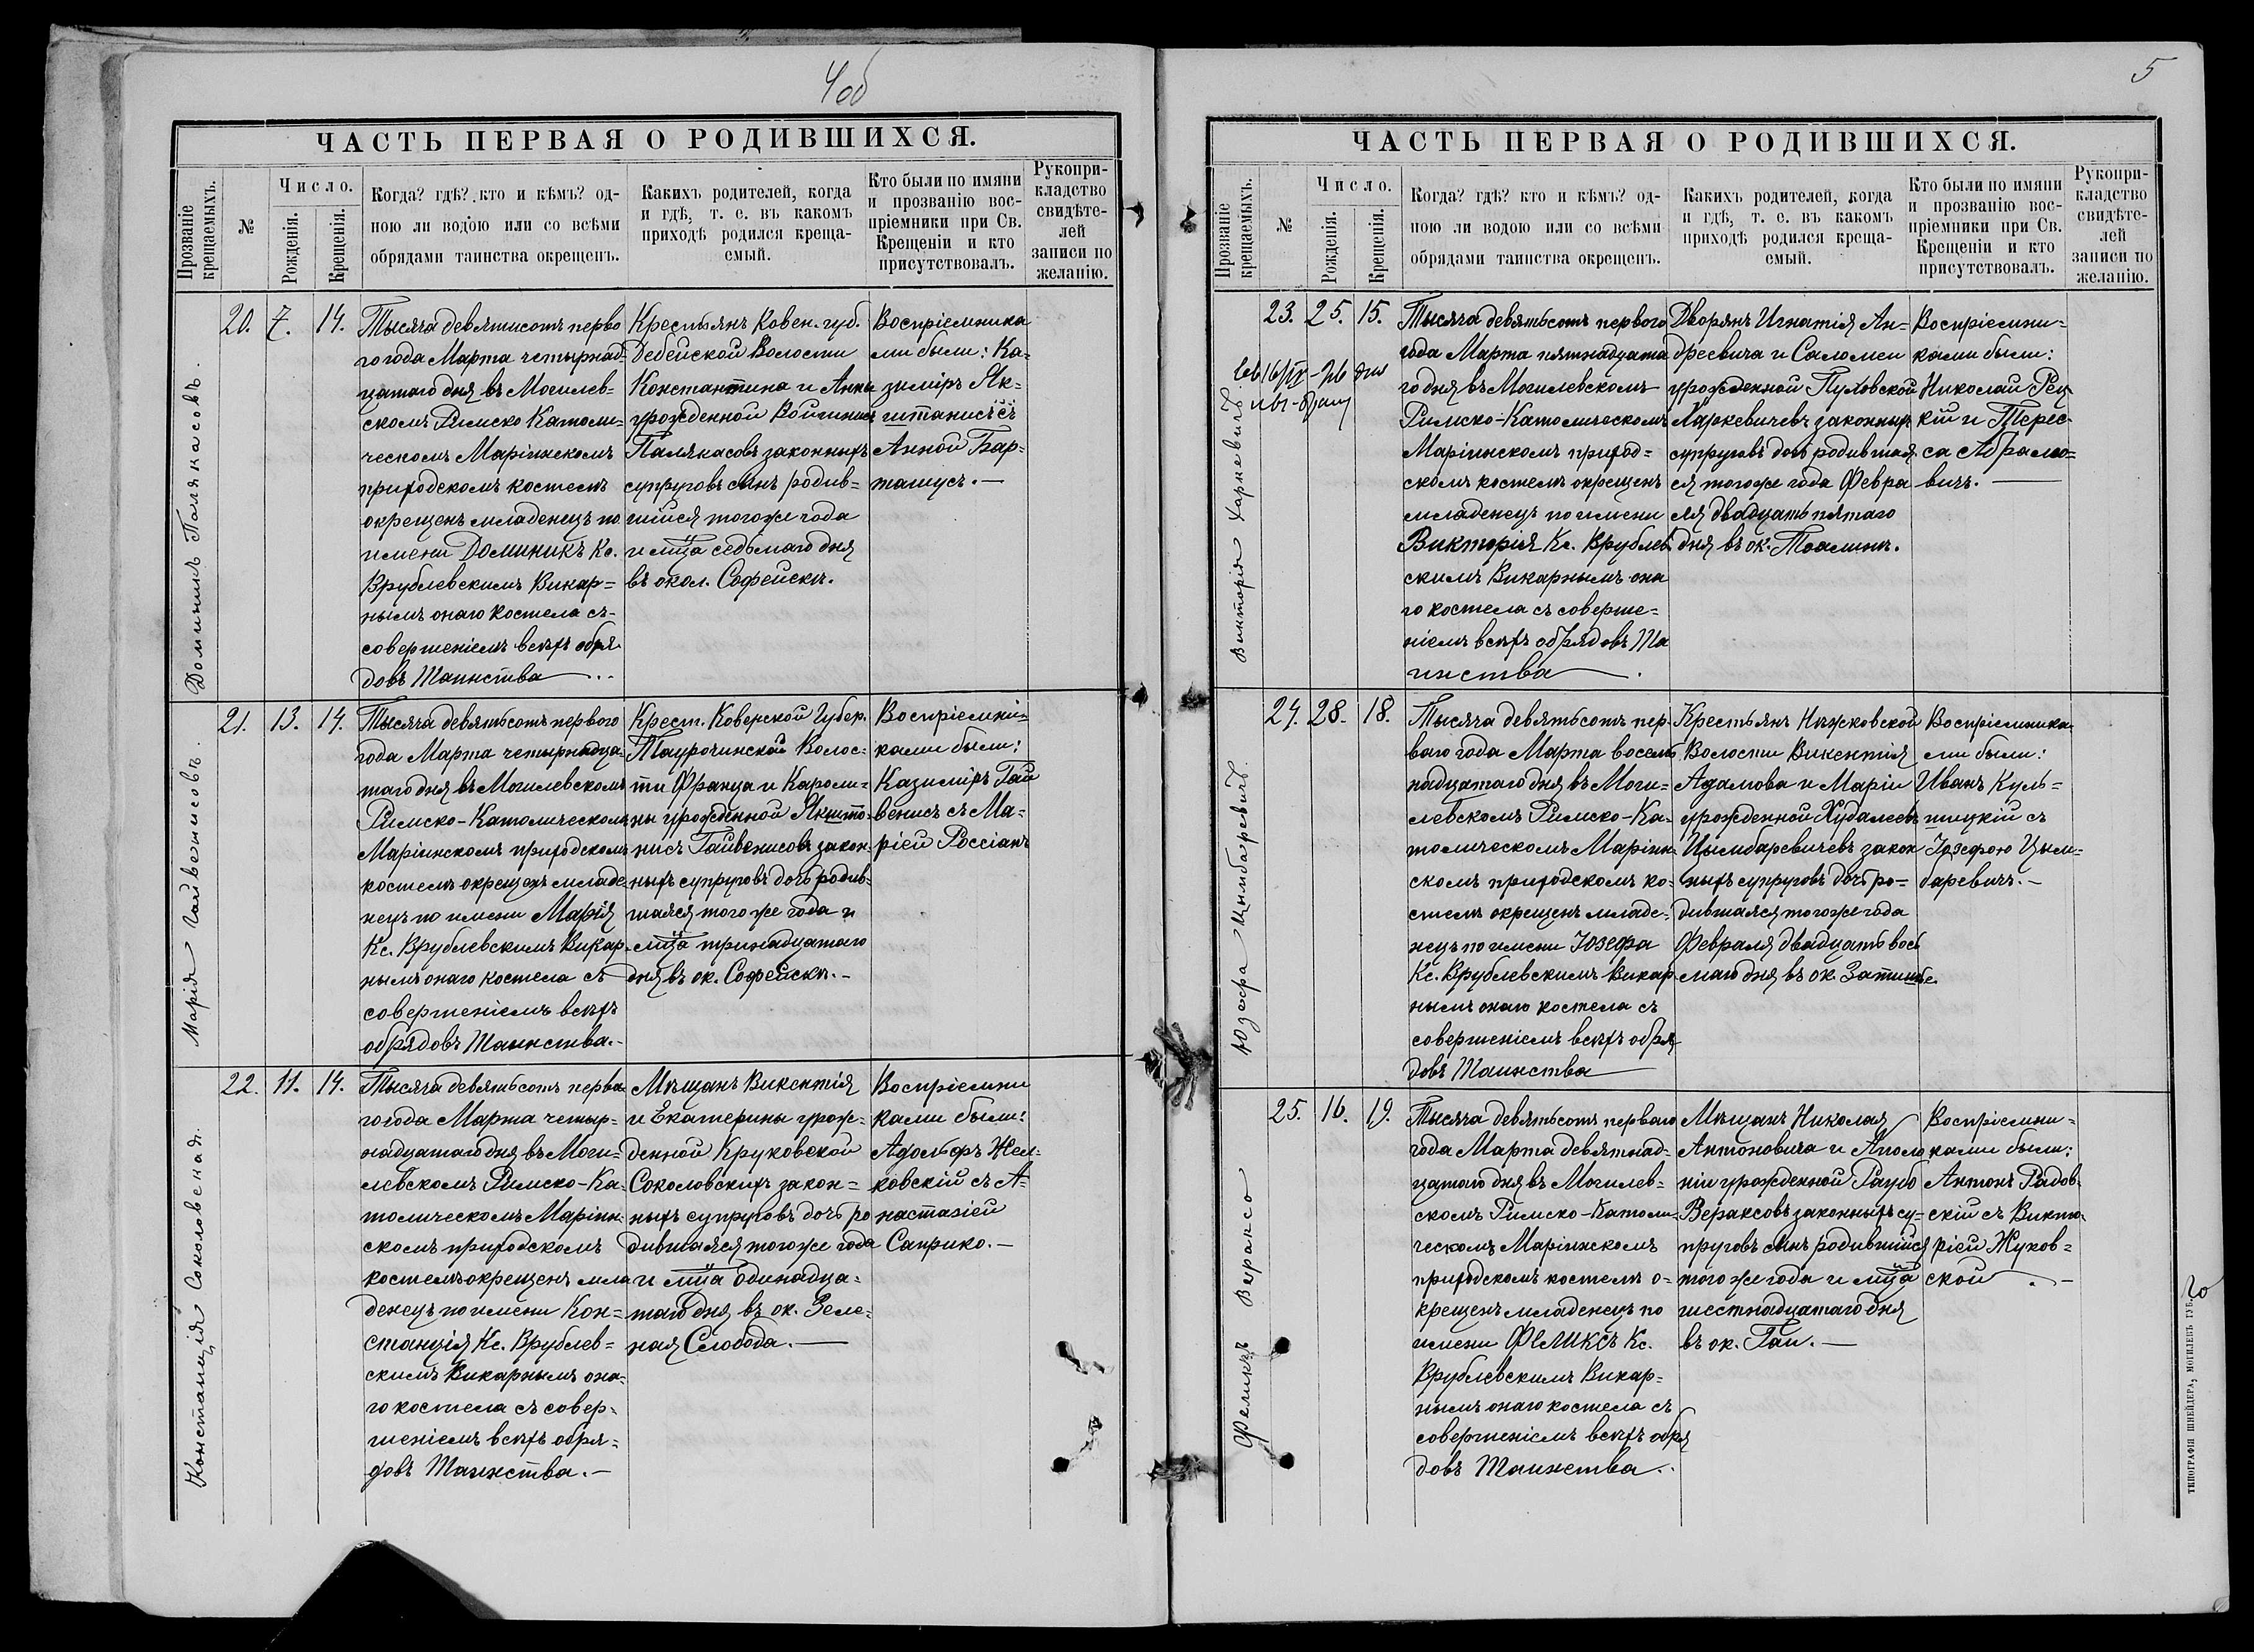 4об
ЧАСТЬ ПЕРВАЯ О РОДИВШИХСЯ.
Прозваніе крещаемыхъ.
№
Число.
Рожденія.
Крещенія.
Когда? гдѣ? кто и кѣмъ? од-
ною ли водою или со всѣми
обрядами таинства окрещенъ.
Какихъ родителей, когда
и гдѣ, т. е. въ какомъ
приходѣ родился креща-
емый.
Кто были по имяни
и прозванію вос-
пріемники при Св.
Крещеніи и кто
присутствовалъ.
Рукопри-
кладство
свидѣте-
лей
записи по
желанію.
Доминикъ Палякасовъ.
20. 7. 14.
Тысяча девятисотъ перво
го года Марта четырнад-
цатаго дня въ Могилев=
скомъ Римско Католи-
ческомъ Маріинскомъ
приходскомъ костелѣ
окрещенъ младенецъ по
имени Доминикъ Кс.
Врублевскимъ Викар=
нымъ онаго костела съ-
совершеніемъ всѣхъ обря
довъ Таинства
Крестьянъ Ковен. губ.
Дебейской Волости
Константина и Анны
урожденной
Палякасовъ законныхъ
супруговъ сынъ родив=
шійся того же года
и м̃ца седьмаго дня
въ окол. Софейски.
Воспріемника
ми были: Ка=
зиміръ Як=
штанисъ съ
Анной Бар=
ташусъ.—
Марія Гайвенисовъ.
21. 13. 14.
Тысяча девятьсотъ перваго
года Марта четырнадца-
таго дня въ Могилевскомъ
Римско-Католическомъ
Маріинскомъ приходскомъ
костелѣ окрещенъ младе-
нецъ по имени Марія
Кс. Врублевскимъ Викар-
нымъ онаго костела съ
совершеніемъ всѣхъ
обрядовъ Таинства.-
Крест. Ковенской Губер.
Волос-
ти Франца и Кароли-
ны урожденной Якшто-
нисъ Гайвенисовъ закон-
ныхъ супруговъ дочь родив-
шаяся того же года и
м̃ца тринадцатаго
дня въ ок. Софейски.-
Воспріемни=
ками были:
Казиміръ Гай
венисъ съ Ма-
ріей Россіанъ
Констанція Соколовская.
22. 11. 14.
Тысяча девятьсотъ перва
го года Марта четыр-
надцатаго дня въ Моги-
левскомъ Римско-Ка-
толическомъ Маріин-
скомъ приходскомъ
костелѣ окрещенъ мла
денецъ по имени Кон=
станція Кс. Врублев=
скимъ Викарнымъ она-
го костела съ совер-
шеніемъ всѣхъ обря=
довъ Таинства.—
Мѣщанъ Викентія
и Екатерины урож-
денной Круковской
Соколовскихъ закон=
ныхъ супруговъ дочь ро
дившаяся того же года
и м̃ца одинадца-
таго дня въ ок. Зеле-
ная Слобода.—
Воспріемни
ками были:
Адольфъ Жел-
ковскій съ А-
настазіей
Саприко.—
5
ЧАСТЬ ПЕРВАЯ О РОДИВШИХСЯ.
Прозваніе крещаемыхъ.
№
Число.
Рожденія.
Крещенія.
Когда? гдѣ? кто и кѣмъ? од-
ною ли водою или со всѣми
обрядами таинства окрещенъ.
Какихъ родителей, когда
и гдѣ, т. е. въ какомъ
приходѣ родился креща-
емый.
Кто были по имяни
и прозванію вос-
пріемники при Св.
Крещеніи и кто
присутствовалъ.
Рукопри-
кладство
свидѣте-
лей
записи по
желанію.
Викторія Харкевичъ
23. 25. 15.
Тысяча девятьсотъ перваго
года Марта пятнадцата
го дня въ Могилевскомъ
Римско-Католическомъ
Маріинскомъ приход=
скомъ костелѣ окрещенъ
младенецъ по имени
Викторія Кс. Врублев-
скимъ Викарнымъ она
го костела съ соверше=
ніемъ всѣхъ обрядовъ Та
инства
Дворянъ Игнатія Ан=
дреевича и Саломеи
урожденной Пуховской
Харкевичевъ законныхъ
супруговъ дочь родившая-
ся того же года Февра
ля двадцать пятаго
дня въ ок.
Воспріемни=
ками были:
Николай Рец
кій и Терес-
са Абрамо=
вичъ.
Юзефа Цимбаревичъ.
24. 28. 18.
Тысяча девятьсотъ пер-
ваго года Марта восемь
надцатаго дня въ Моги=
левскомъ Римско-Ка-
толическомъ Маріин-
скомъ приходскомъ ко-
стелѣ окрещенъ младе-
нецъ по имени Юзефа
Кс. Врублевскимъ Викар-
нымъ онаго костела съ
совершеніемъ всѣхъ обря-
довъ Таинства
Крестьянъ Няжковской
Волости Викентія
Адамова и Маріи
урожденной
Цымбаревичевъ закон
ныхъ супруговъ дочь ро=
дившаяся того же года
Февраля двадцать вось
маго дня въ ок. Затишье
Воспріемника
ми были:
Иванъ Куль=
шицкій съ
Юзефою Цым=
баревичъ.—
Феликсъ Вераксо
25. 16. 19.
Тысяча девятьсотъ перваго
года Марта девятнад=
цатаго дня въ Могилев=
скомъ Римско-Католи-
ческомъ Маріинскомъ
приходскомъ костелѣ о-
крещенъ младенецъ по
имени Феликсъ Кс.
Врублевскимъ Викар=
нымъ онаго костела съ
совершеніемъ всѣхъ обря
довъ Таинства..
Мѣщанъ Николая
Антоновича и Аполо
ніи урожденной Раубо
Вераксовъ законныхъ су=
пруговъ сынъ родившійся
того же года и м̃ца
шестнадцатаго дня
въ ок. Гаи.—
Воспріемни=
ками были:
Антонъ Радов-
скій съ Викто-
ріей Жуков=
ской.—
ТИПОГРАФІЯ ШНЕЙДЕРА, МОГИЛЕВЪ ГУБ.